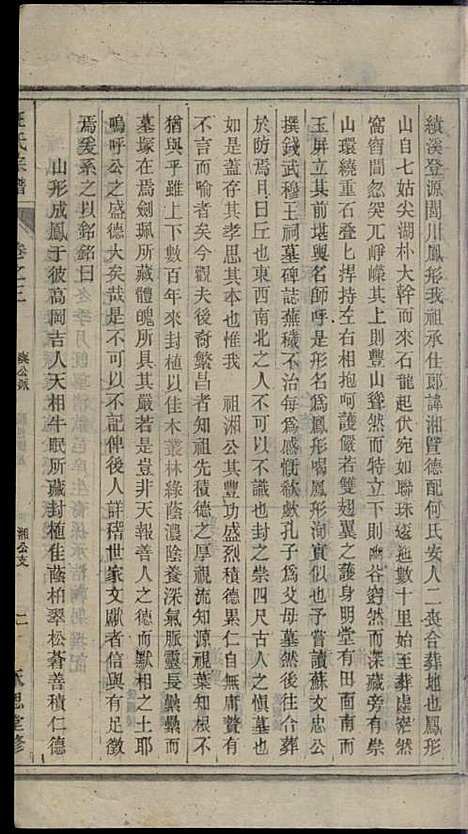 績溪登源閭川鳳形我祖承仕郎諱湘賢德配何氏安人二喪合葬地也鳳形
山自七姑尖湖朴大幹而來石龍起伏宛如聯珠逶迤數十里始至葬虛茫然
窩窟間忽突兀崢嶸其上則豐山聳然而特立下則幽谷窈然而深藏旁有崇
山環繞重石疊上捍持左右相抱呵護儼若雙翅翼之護身明堂有田面南而
玉屏立其前堪輿名師呼是形名為鳳形喝鳳形洵實似也予嘗讀蘇文忠公
撰錢武穆王祠墓碑誌蕪穢不治每爲感慨欷歔孔子爲父母墓既得合葬
於防焉曰丘也東西南北之人不可以不識也封之崇四尺古人之愼墓也
如是蓋存其孝思其本也惟我 祖湘公其豐功盛烈積德累仁自無庸贅有
不知者矣今觀夫後裔繁昌者知祖先積德之厚視流知源視葉知根不
猶與乎雖上下數百年來封植以佳木叢林綠蔭濃陰養深氣脈靈長纍纍而
墓塚在焉劍珮所藏體魄所具其嚴若是豈非天報善人之德而默相之土耶
嗚呼公之盛德大矣哉是不可以不記俾後人詳稽世家文獻者信與有足徵
焉爰系之以銘銘曰
山形成鳳于彼高岡吉人天相牛眠所藏封植佳蔭柏翠松蒼善積仁德
汪氏宗譜
卷之二
湘公支
二
永思堂修